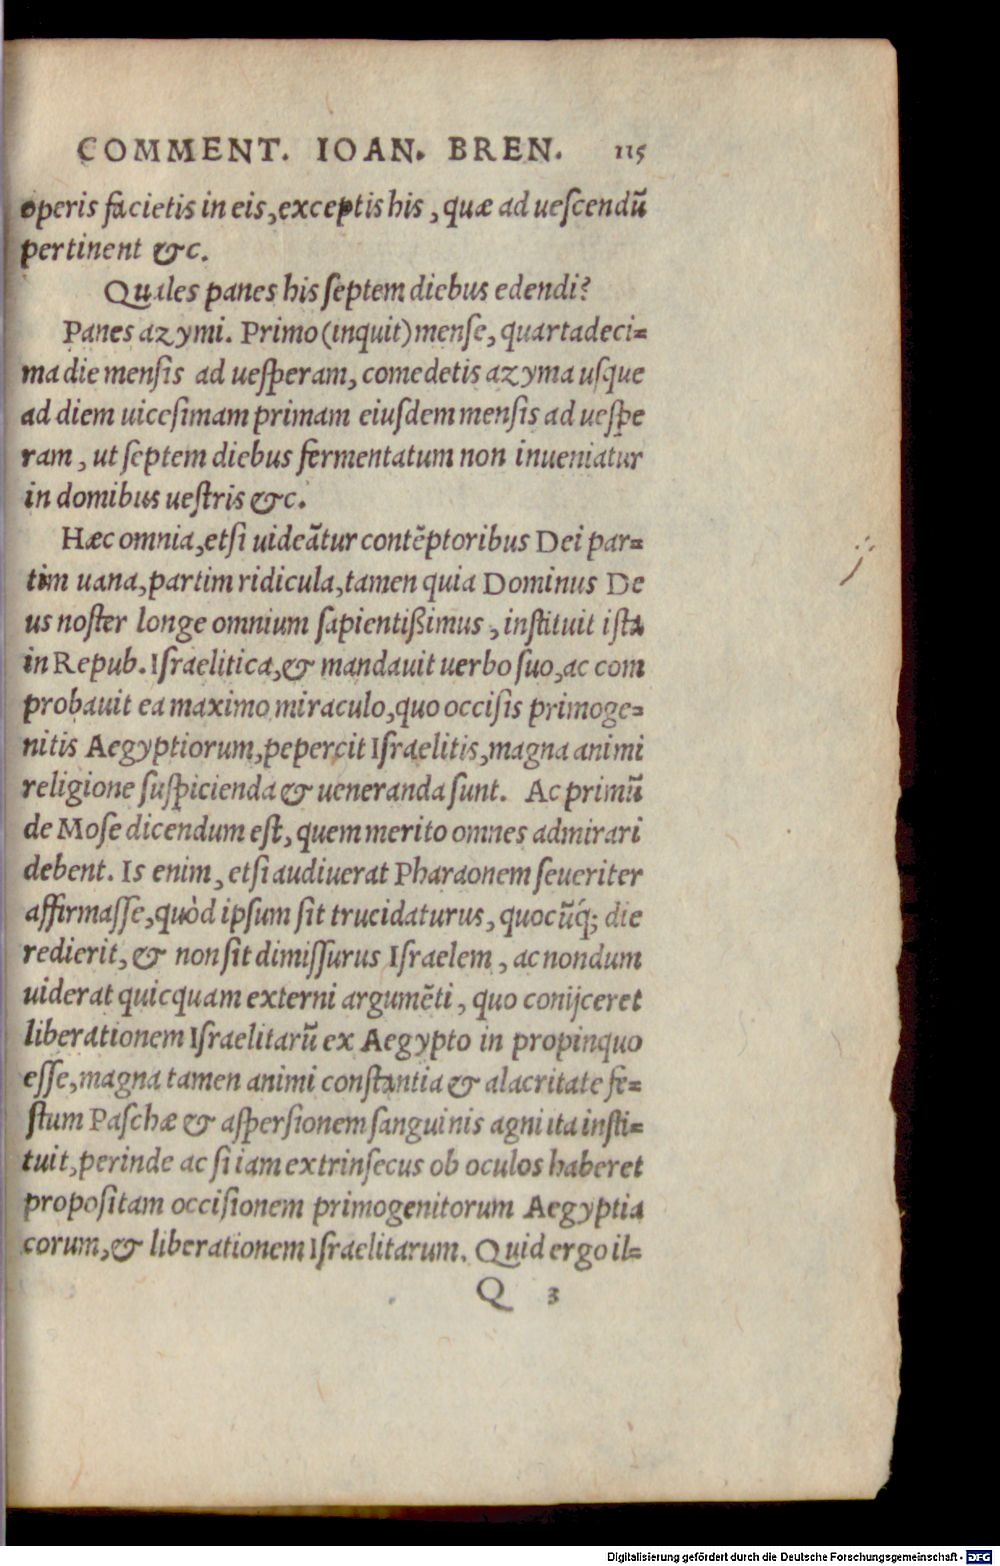 COMMENT. IOAN. BREN. 115
operis facietis in eis, exceptis his, quæ ad uescendũ
pertinent &c.
Quales panes his septem diebus edendi?
Panes azymi. Primo (inquit) mense, quartadeci=
ma die mensis ad uesperam, comedetis azyma usque
ad diem uicesimam primam eiusdem mensis ad uespe
ram, ut septem diebus fermentatum non inueniatur
in domibus uestris &c.
Hæc omnia, etsi uideãtur contẽptoribus Dei par=
tim uana, partim ridicula, tamen quia Dominus De
us noster longe omnium sapientißimus, instituit ista
in Repub. Israelitica, & mandauit uerbo suo, ac com
probauit ea maximo miraculo, quo occisis primoge=
nitis Aegyptiorum, pepercit Israelitis, magna animi
religione suspicienda & ueneranda sunt. Ac primũ
de Mose dicendum est, quem merito omnes admirari
debent. Is enim, etsi audiuerat Pharaonem seueriter
affirmasse, quòd ipsum sit trucidaturus, quocũq́; die
redierit, & non sit dimissurus Israelem, ac nondum
uiderat quicquam externi argumẽti, quo conijceret
liberationem Israelitarũ ex Aegypto in propinquo
esse, magna tamen animi constantia & alacritate fe=
stum Paschæ & aspersionem sanguinis agni ita insti=
tuit, perinde ac si iam extrinsecus ob oculos haberet
propositam occisionem primogenitorum Aegyptia
corum, & liberationem Israelitarum. Quid ergo il=
Q 3
Digitalisierung gefördert durch die Deutsche Forschungsgemeinschaft - DFG